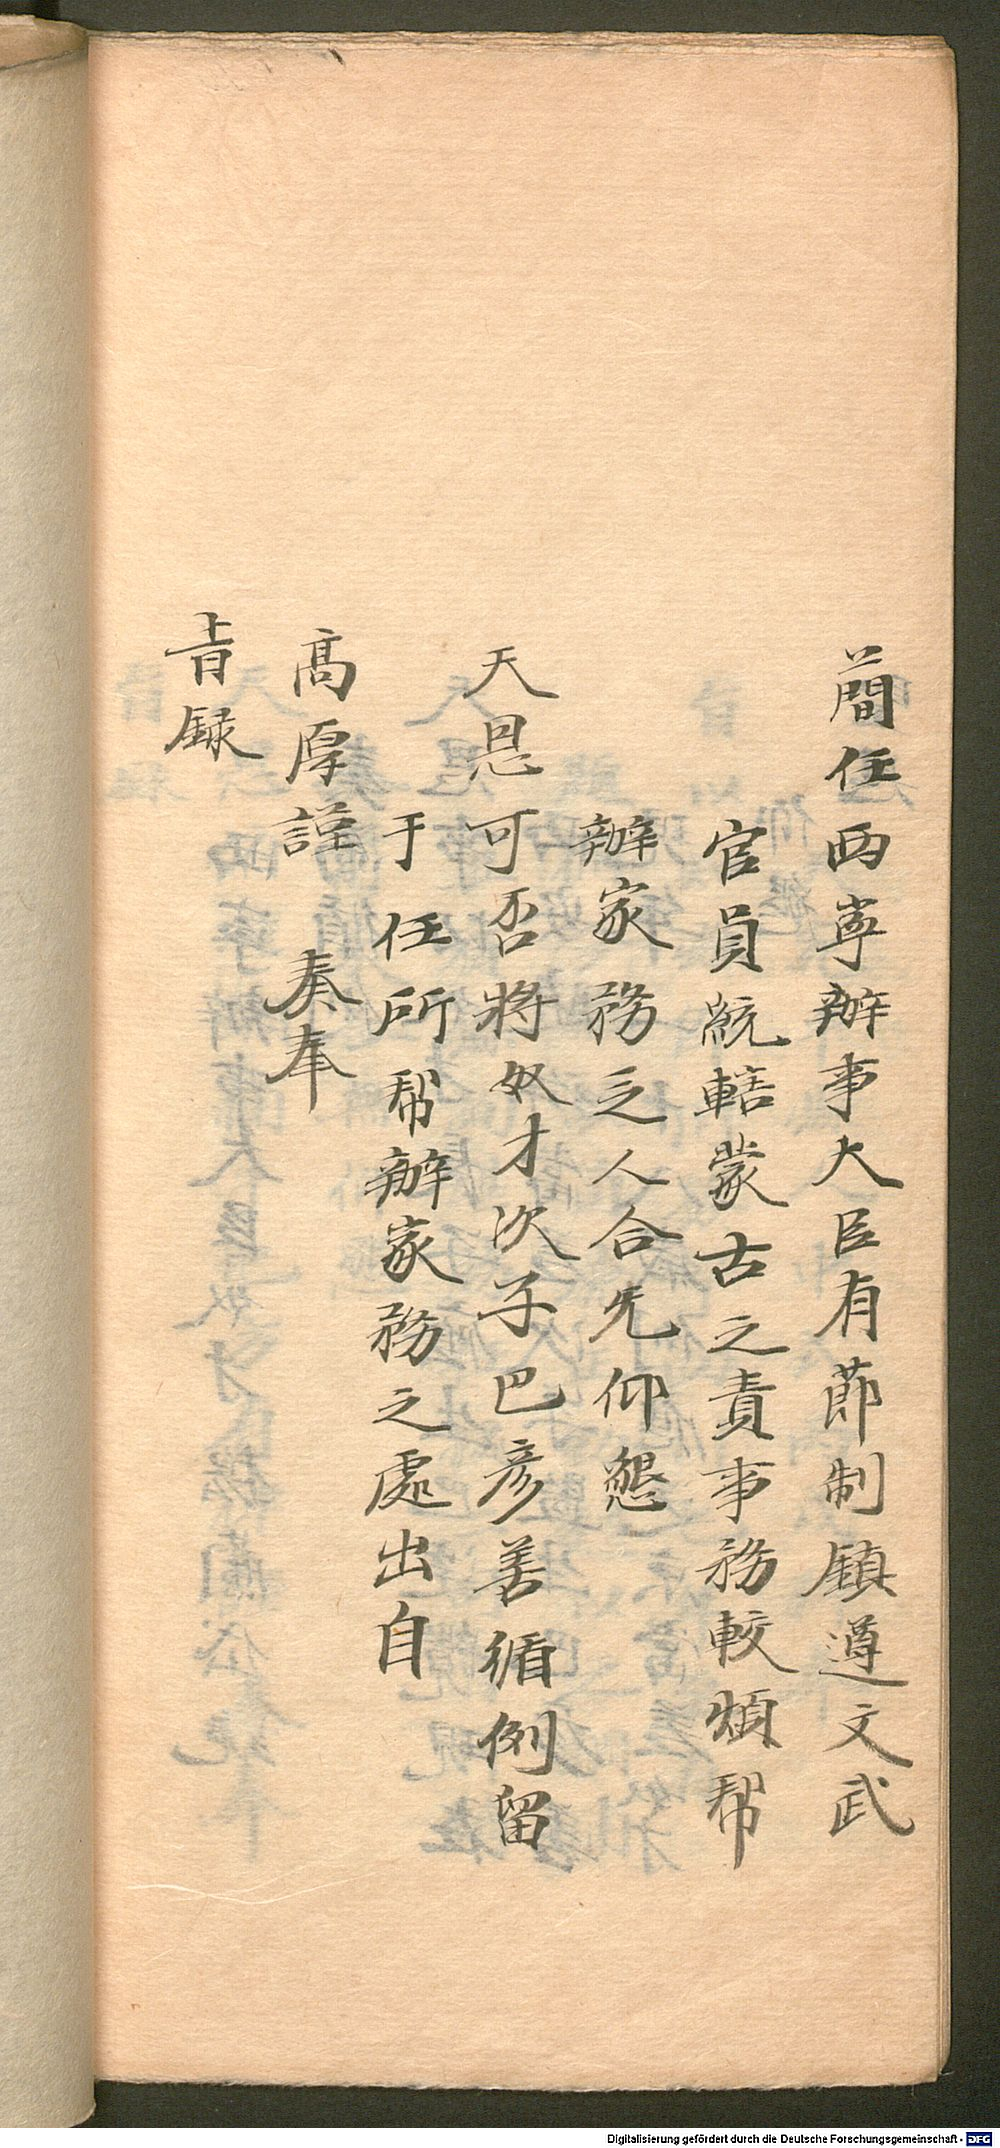 簡任西寧辦事大臣有莭制鎮道文武
官員統轄蒙古之責事務較煩帮
辦家務乏人合先仰懇
天恩可否將奴才次子巴彥善循例留
于任所帮辦家務之處出自
高厚謹 奏奉
旨録
Digitalisierung gefördert durch die Deutsche Forschungsgemeinschaft - DFG